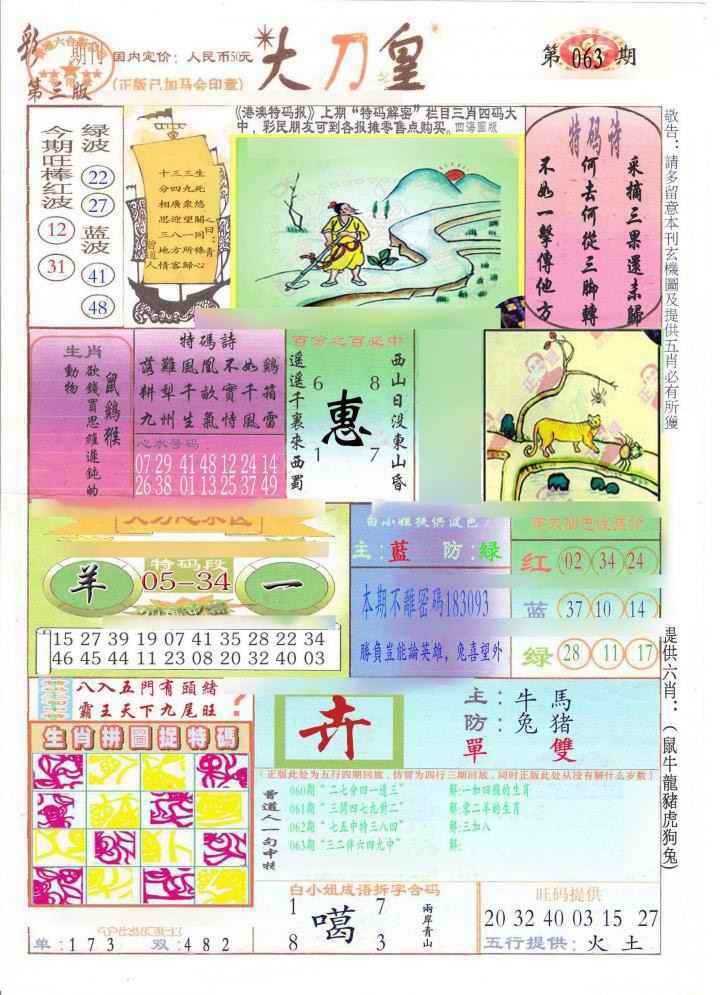 彩
期刊
第三版
国内定价：人民币50元
(正版已加马会印章)
大刀皇
第063期
《港澳特码报》上期“特码解密”栏目三肖四码大
中，彩民朋友可到各报摊零售点购买。四海圖版
今期旺棒红波
12
31
绿波
22
27
蓝波
41
48
十三三生
分四九死
相廣衆悠
思迎望關
三八一同
地方所條
情客歸心
曾道人
特码诗
采摘三果還未歸
何去何從三脚轉
不如一擊傳他方
敬告：請多留意本刊玄機圖及提供五肖必有所獲
生肖
欲錢買思維遲鈍的
動物
鼠鷄猴
特碼詩
落難鳳凰不如鷄
耕犁千畝實千箱
九州生氣恃風雷
心水号码
07 29 41 48 12 24 14
26 38 01 13 25 37 49
百分之百必中
西山日没東山昏
遥遥千裏來西蜀
6 8
惠
1 7
羊
特码段
05-34
一
15 27 39 19 07 41 35 28 22 34
46 45 44 11 23 08 20 32 40 03
白小姐提供波色
主：蓝 防：绿
本期不離密碼183093
勝負豈能論英雄，兔喜望外
红 02 34 24
蓝 37 10 14
绿 28 11 17
提供六肖：（鼠牛龍豬虎狗兔）
八入五門有頭緒
霸王天下九尾旺
？
生肖拼圖捉特碼
单：173 双：482
卉
主：牛 馬
防：兔 猪
單 雙
（正版此处为五行四期回放，仿冒为四行三期回放，同时正版此处从没有解什么岁数）
曾道人一句中特
060期“二七分四一边三” 解:一加四複的生肖
061期“三問四七九對二” 解:零二羊的生肖
062期“七五中特三八四” 解:三加八
063期“三二伴六四九中” 解:
白小姐成语拆字合码
1 7
噶
8 3
兩岸青山
旺码提供
20 32 40 03 15 27
五行提供：火 土